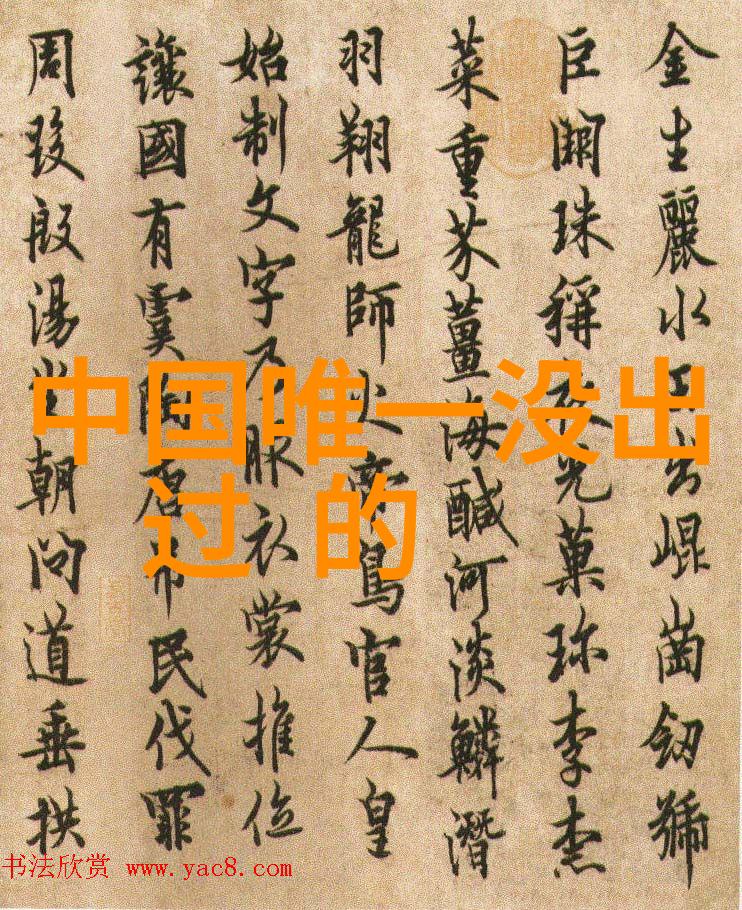 金生麗水玉出崐崗釼號
巨闕珠稱夜光菓珎李柰
菜重芥薑海醎河淡鱗潛
羽翔龍師火帝鳥官人皇
始制文字乃服衣裳推位
讓國有虞陶唐吊民伐罪
周發殷湯坐朝問道垂拱
中国唯一没出
过 的
书法欣赏 www.yac8.com